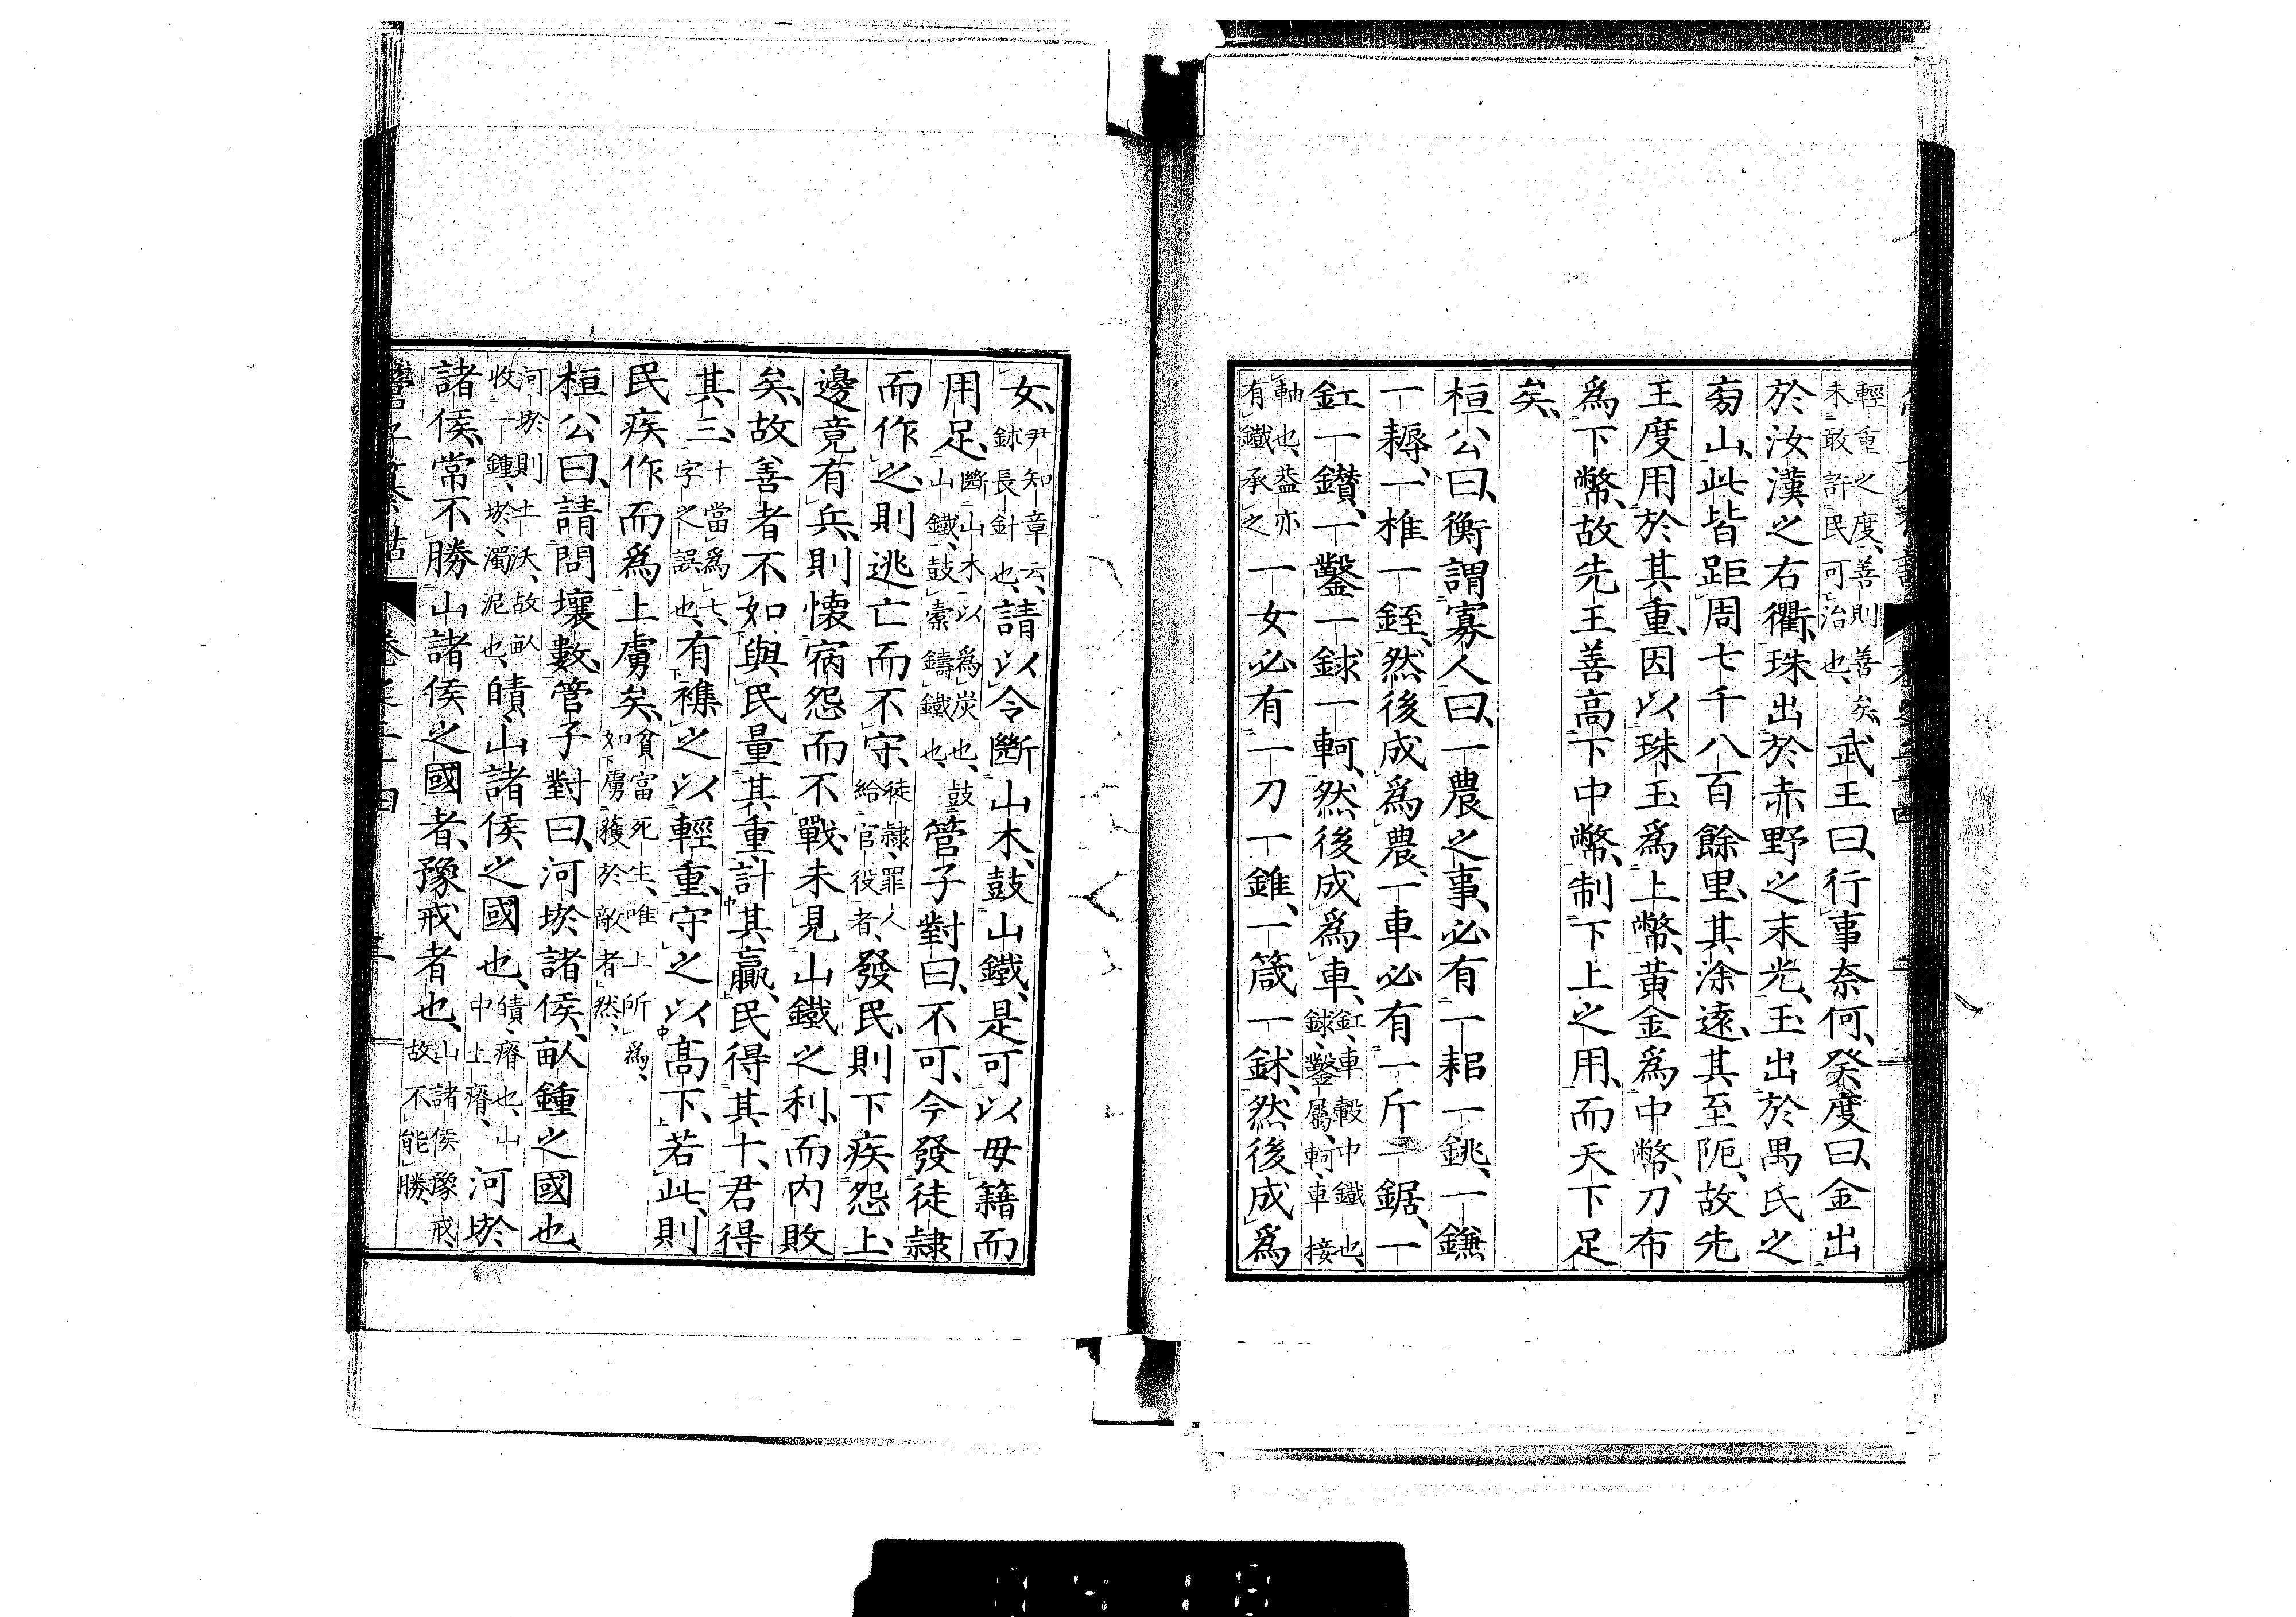 輕重之度、善則善矣、
未敢許民可治也、
武王曰、行事奈何、癸度曰、金出
於汝漢之右衢、珠出於赤野之末光、玉出於禺氏之
旁山、此皆距周七千八百餘里、其涂遠、其至阨、故先
王度用於其重、因以珠玉爲上幣、黃金爲中幣、刀布
爲下幣、故先王善高下中幣、制下上之用、而天下足
矣、
桓公曰、衡謂寡人曰、一農之事、必有一耜一銚、一鎌
一耨、一椎一銍、然後成爲農、一車必有一斤一鋸、一
釭一鑽、一鑿一銶一軻、然後成爲車、
釭、車轂中鐵也、
銶、鑿屬、軻、車接
軸也、蓋亦
有鐵承之
一女必有一刀一錐、一箴一鉥、然後成爲
女、
尹知章云、
鉥長針也、
請以令斷山木、鼓山鐵、是可以毋籍而
用足、
斷山木、以爲炭也、鼓
山鐵、鼓橐鑄鐵也、
管子對曰、不可、今發徒隷
而作之、則逃亡而不守、
徒隷、罪人
給官役者、
發民、則下疾怨上、
邊竟有兵、則懷宿怨而不戰、未見山鐵之利、而內敗
矣、故善者不如與民量其重、計其贏、民得其十、君得
其三、
十當爲七、
字之誤也、
有襍之以輕重、守之以高下、若此、則
民疾作而爲上虜矣、
貧富死生、唯上所爲、
如虜獲於敵者然、
桓公曰、請問壤數、管子對曰、河㳺諸侯、畝鍾之國也、
河㳺則土沃、故畝
收一鍾、㳺、濁泥也、
䃣、山諸侯之國也、
䃣、瘠也、山
中土瘠、
河㳺
諸侯、常不勝山諸侯之國者、豫戒者也、
山諸侯豫戒、
故不能勝、
管子纂詁
卷之二十四